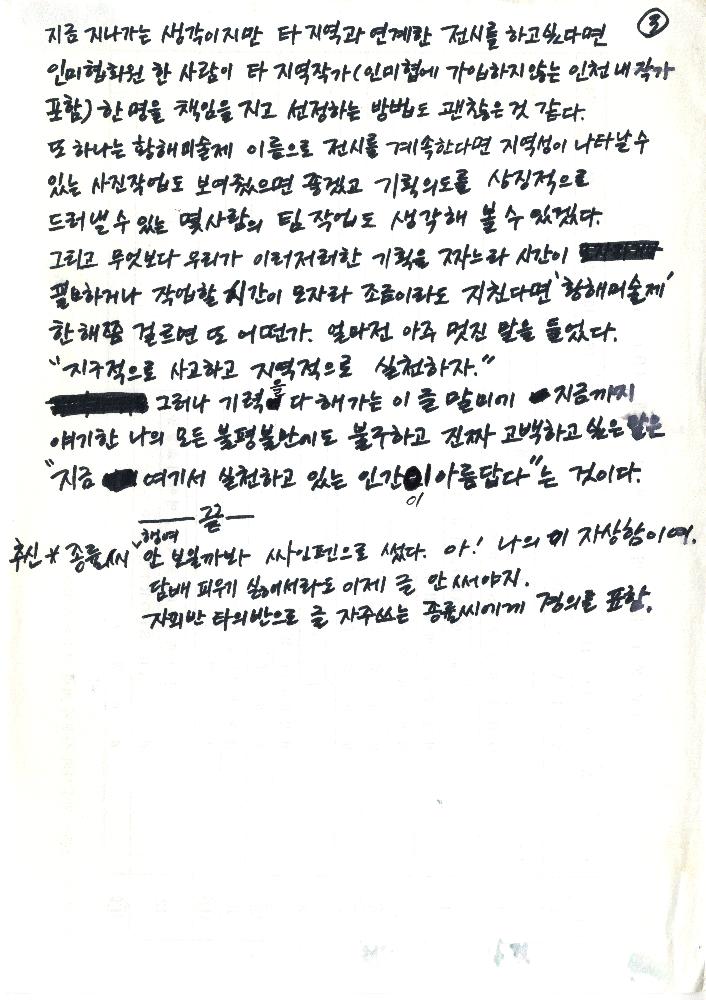 ③
지금 지나가는 생각이지만 타 지역과 연계한 전시를 하고싶다면
인미협회원 한 사람이 타 지역작가(인미협에 가입하지않는 인천내작가
포함) 한 명을 책임을 지고 선정하는 방법도 괜찮은것 같다.
또 하나는 황해미술제 이름으로 전시를 계속한다면 지역성이 나타날수
있는 사진작업도 보여줬으면 좋겠고 기획의도를 상징적으로
드러낼 수 있는 몇사람의 팀작업도 생각해 볼 수 있겠다.
그리고 무엇보다 우리가 이러저러한 기획을 짜느라 시간이
필요하거나 작업할 시간이 모자라 조금이라도 지친다면 '황해미술제'
한해쯤 걸르면 또 어떤가. 얼마전 아주 멋진 말을 들었다.
"지구적으로 사고하고 지역적으로 실천하자."
그러나 기력을 다해가는 이 글 말미에 지금까지
얘기한 나의 모든 불평불만에도 불구하고 진짜 고백하고 싶은 말은
"지금 여기서 실천하고 있는 인간이 아름답다"는 것이다.
── 끝 ──
추신 * 종률씨 행여 안 보일까봐 싸인펜으로 썼다. 아! 나의 이 자상함이여.
담배 피우기 싫어서라도 이제 글 안써야지.
자의반 타의반으로 글 자주쓰는 종률씨에게 경의를 표함.